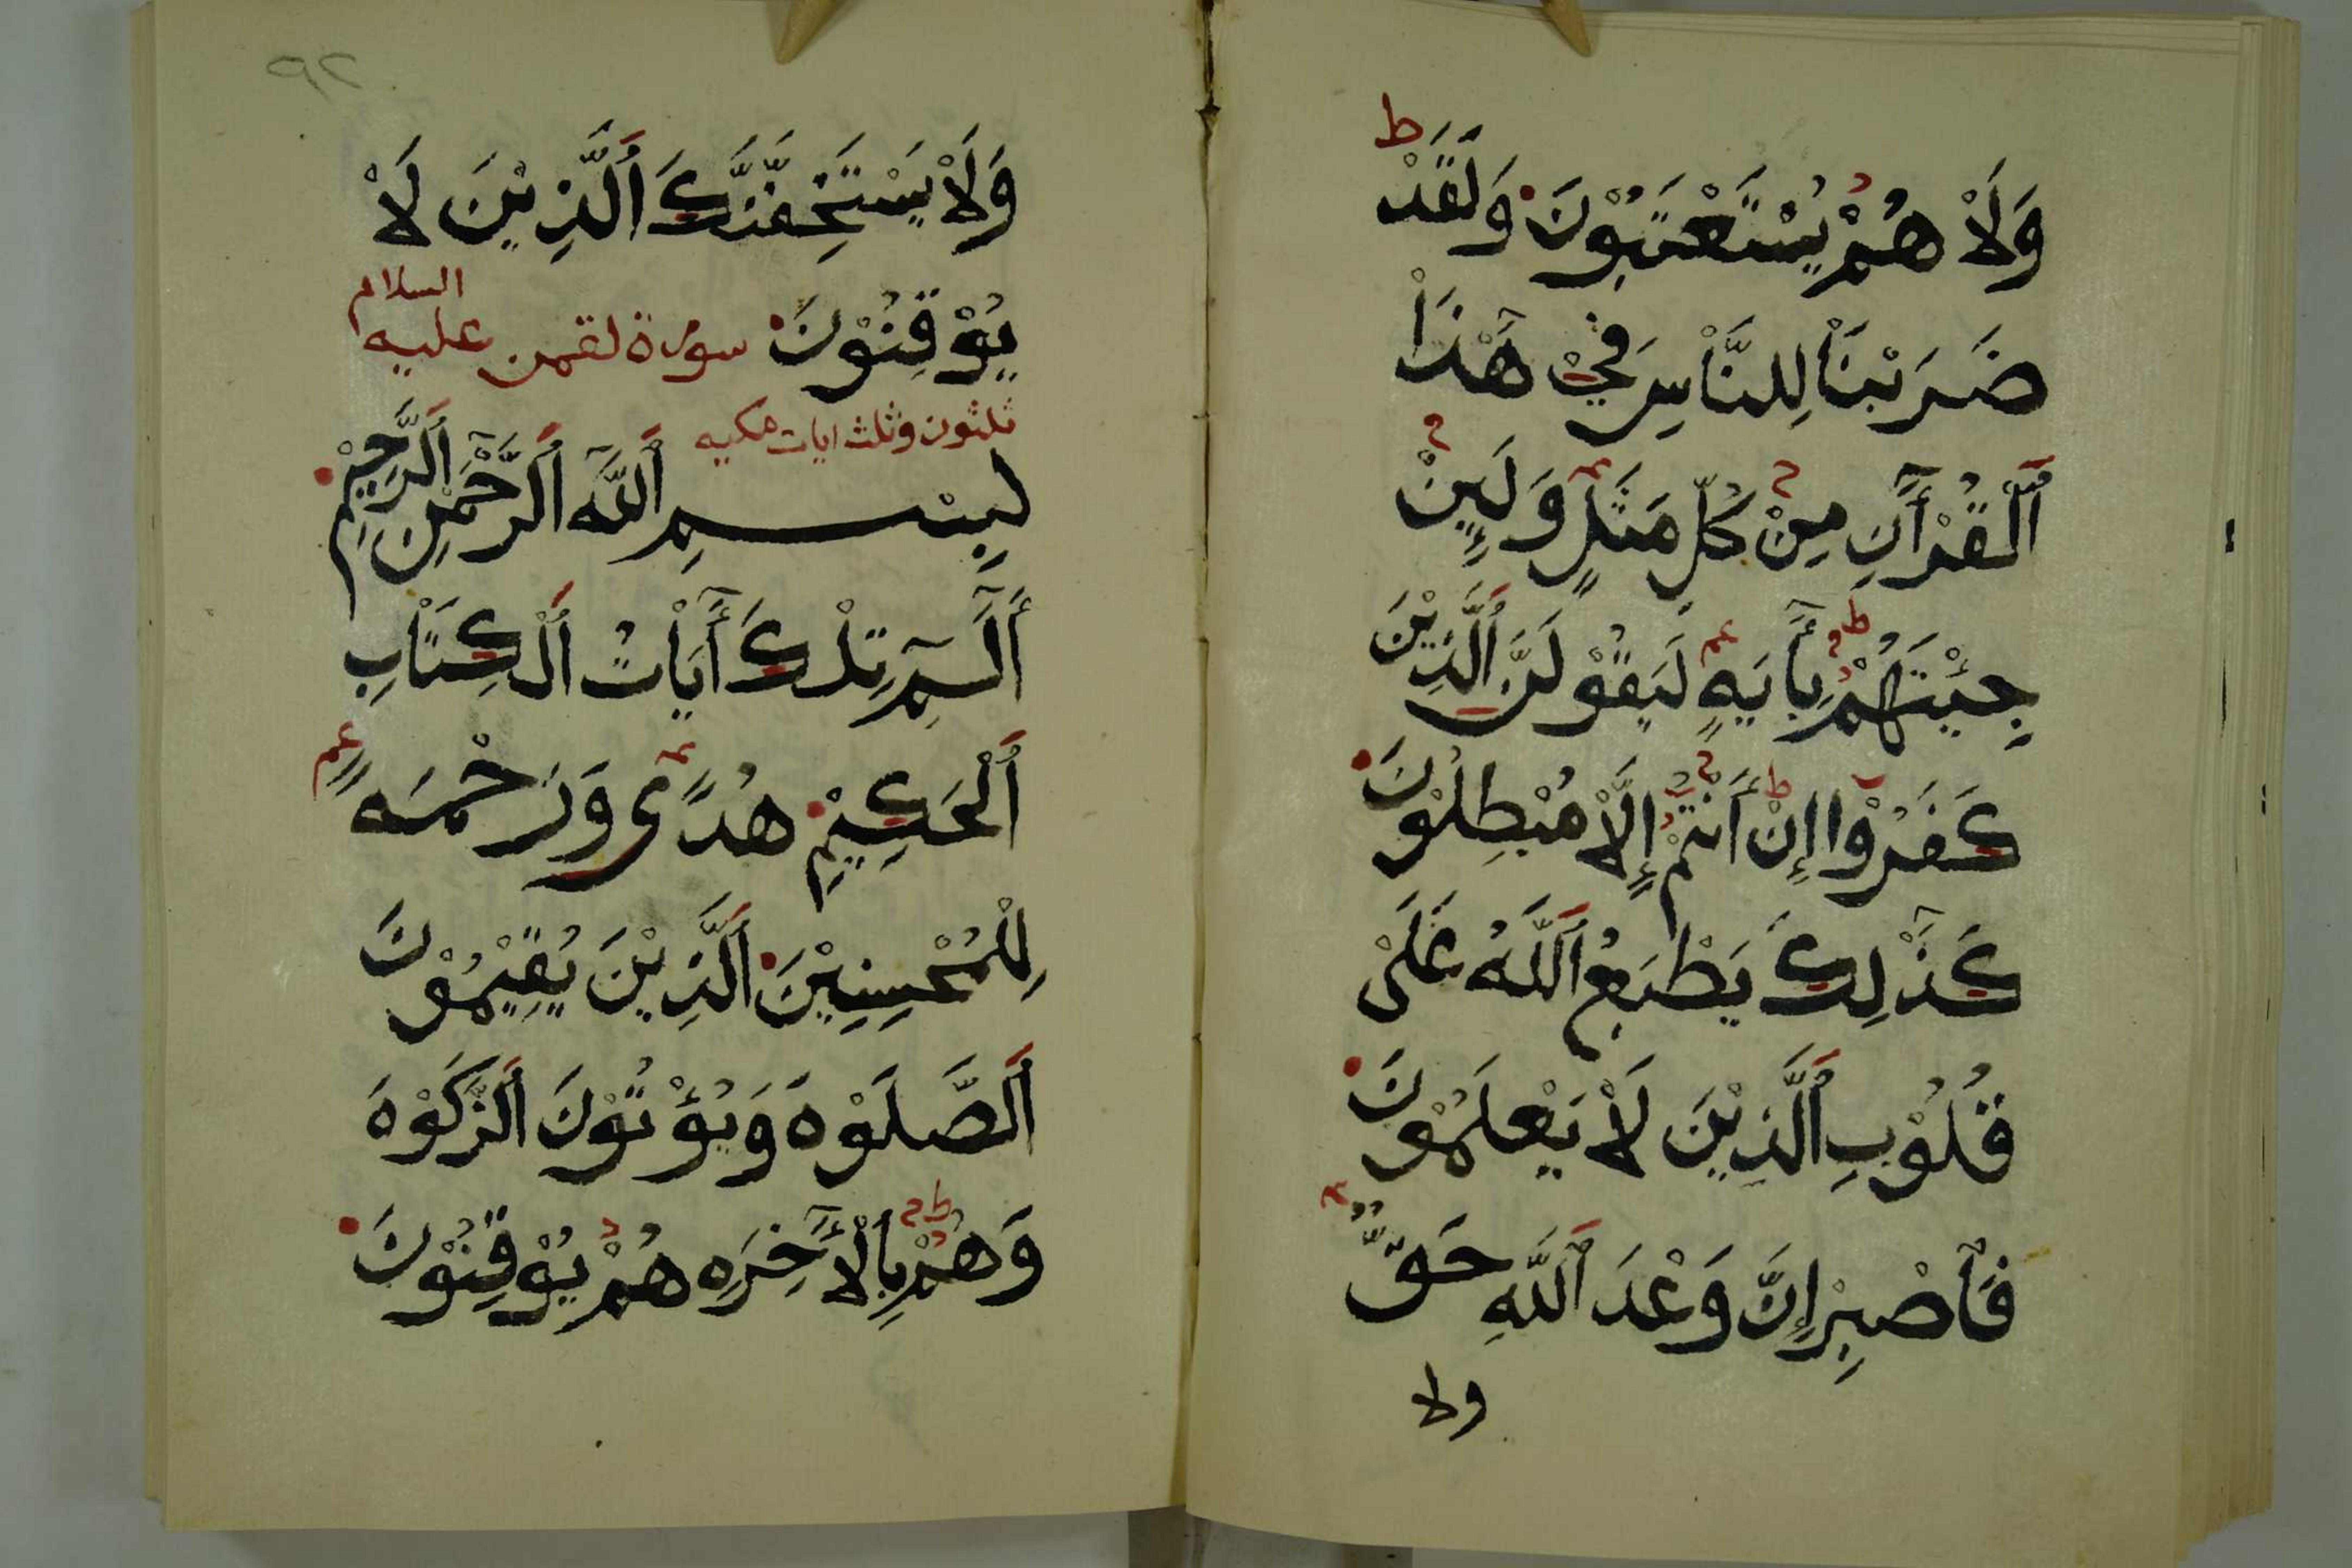 وَلَاْ هُمْ يُسْتَعْتَبُوْنَ وَلَقَدْ
ضَرَبْنَاْ لِلنَّاْسِ فِيْ هَٰذَاْ
ٱلْقُرْآنِ مِنْ كُلِّ مَثَلٍ وَلَئِنْ
جِئْتَهُمْ بِأَيَةٍ لَيَقُوْلَنَّ ٱلَّذِيْنَ
كَفَرُوْا إِنْ أَنْتُمْ إِلَّاْ مُبْطِلُوْنَ
كَذَٰلِكَ يَطْبَعُ ٱللَّهُ عَلَىْ
قُلُوْبِ ٱلَّذِيْنَ لَاْ يَعْلَمُوْنَ
فَٱصْبِرْ إِنَّ وَعْدَ ٱللَّهِ حَقٌّ
ولا
٩٢
وَلَاْ يَسْتَخِفَّنَّكَ ٱلَّذِيْنَ لَاْ
يُوْقِنُوْنَ سورة لقمن عليه السلام
ثلثون وثلث ايات مكيه
بِسْمِ ٱللَّه ٱلرَّحْمَٰنِ ٱلرَّحِيْمِ
أَلٓمٓ تِلْكَ أَيَاْتُ ٱلْكِتَاْبِ
ٱلْحَكِيْمِ هُدًى وَرَحْمَةً
لِلْمُحْسِنِيْنَ ٱلَّذِيْنَ يُقِيْمُوْنَ
ٱلصَّلَوْةَ وَيُؤْتُوْنَ ٱلزَّكَوْةَ
وَهُمْ بِٱلْأَخِرَةِ هُمْ يُوْقِنُوْنَ